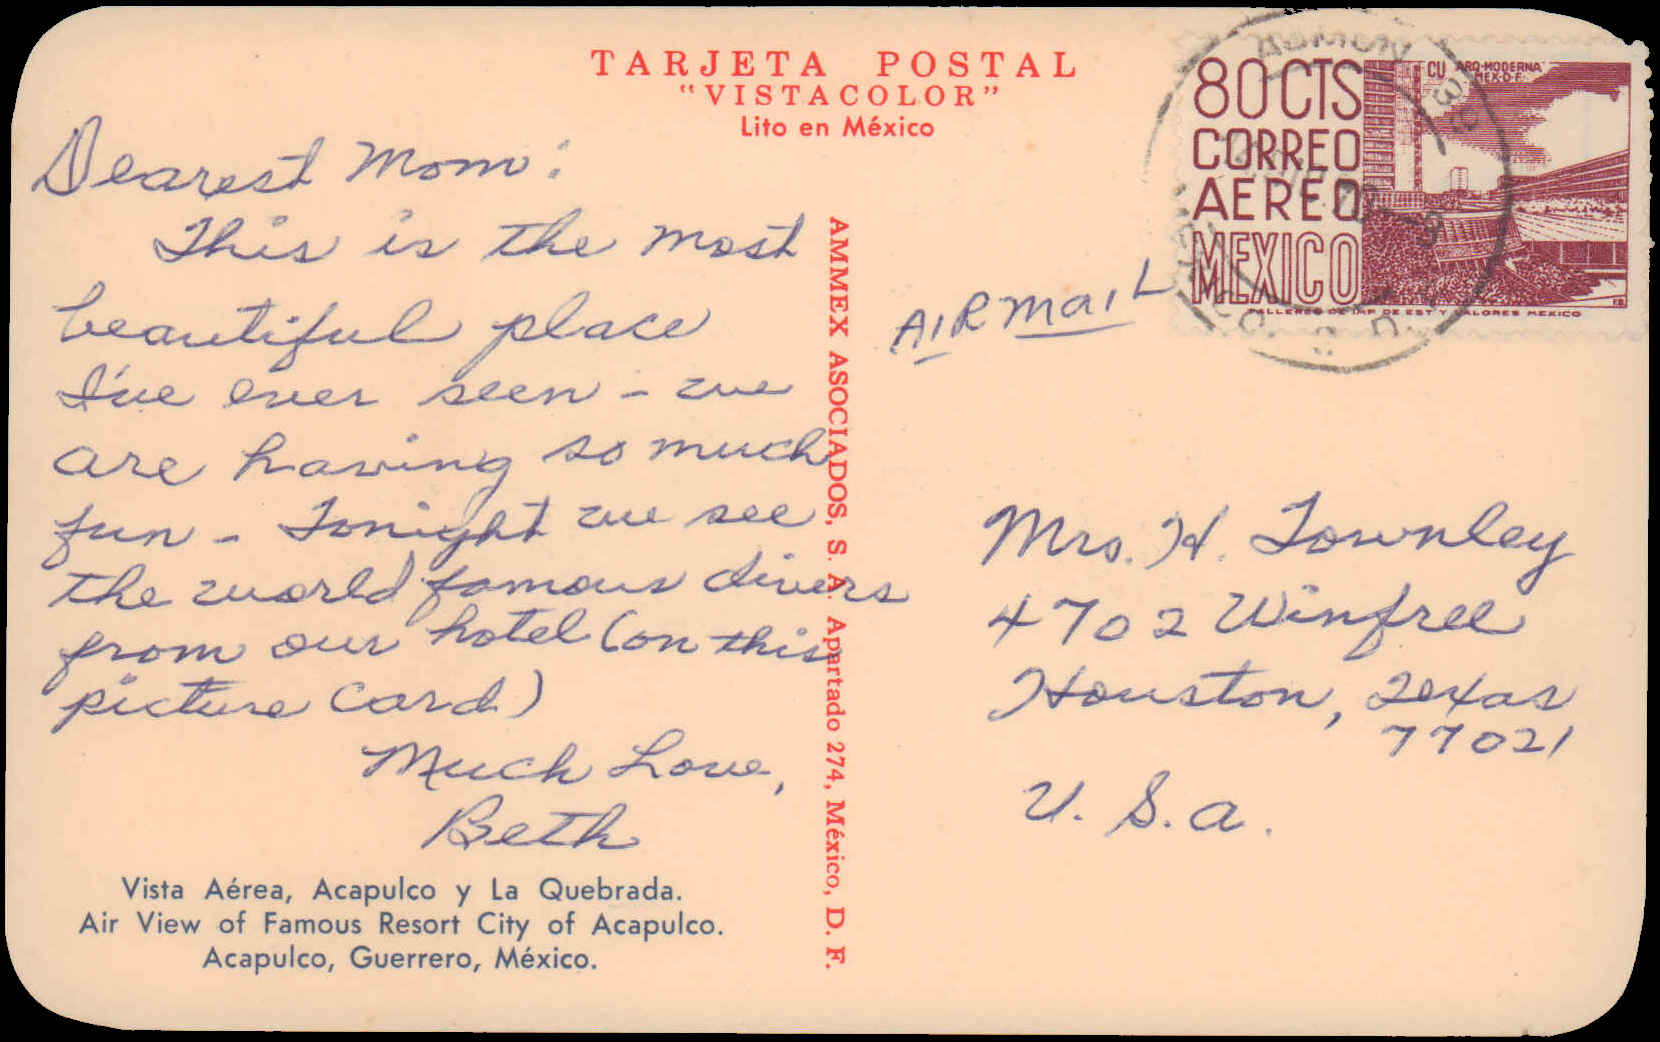 TARJETA POSTAL
"VISTACOLOR"
Lito en México
Dearest Mom:
This is the most
beautiful place
I've ever seen – we
are having so much
fun – Tonight we see
the world famous divers
from our hotel (on this
picture card)
Much Love,
Beth
Vista Aérea, Acapulco y La Quebrada.
Air View of Famous Resort City of Acapulco.
Acapulco, Guerrero, México.
AMMEX ASOCIADOS, S. A. Apartado 274, México, D. F.
80 CTS
CORREO
AEREO
MEXICO
CU ARQ·MODERNA
MEX·D·F·
TALLERES DE IMP DE EST Y VALORES MEXICO
AIRMAIL
Mrs. H. Townley
4702 Winfree
Houston, Texas
77021
U. S. A.